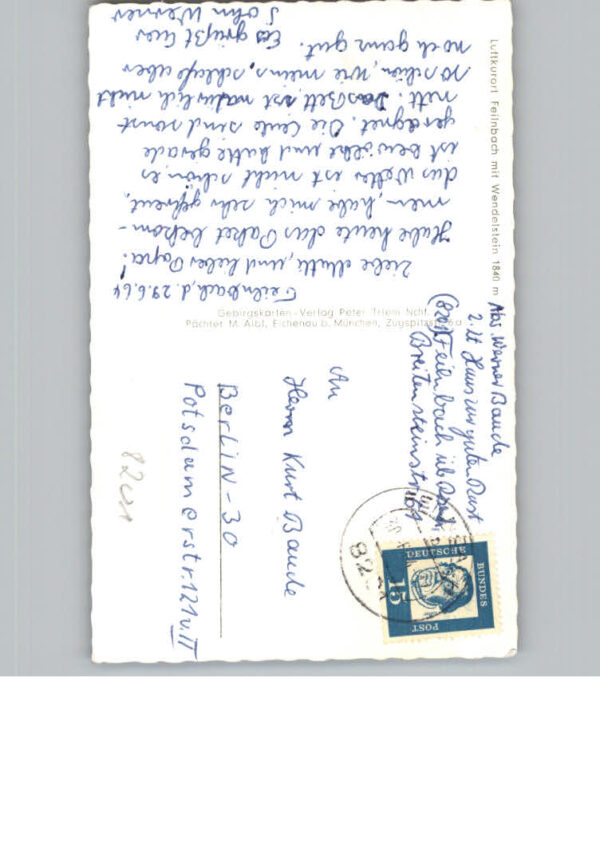 Luftkurort Feilnbach mit Wendelstein 1840 m
Feilnbach, d. 29.6.64
Liebe Mutti, und lieber Papa!
Habe heute das Paket bekom-
men, habe mich sehr gefreut,
das Wetter ist nicht schön, es
ist bewölkt und hatte gerade
geregnet. Die Leute sind sonst
nett. Das Bett ist natürlich nicht
so schön, wie meins, schlafe aber
noch ganz gut. Es grüßt Euer
Sohn Werner
Gebirgskarten-Verlag Peter Triem Nchf.
Pächter M. Aibl, Eichenau b. München, Zugspitzstr. 6a
Abs. Werner Baude
z. Zt Haus zur guten Rast
(8201) Feilnbach üb Rosenh.
Breitensteinstr.
An
Herrn Kurt Baude
Berlin-30
Potsdamerstr. 121 v. II
8201
DEUTSCHE
BUNDES
POST
15
82